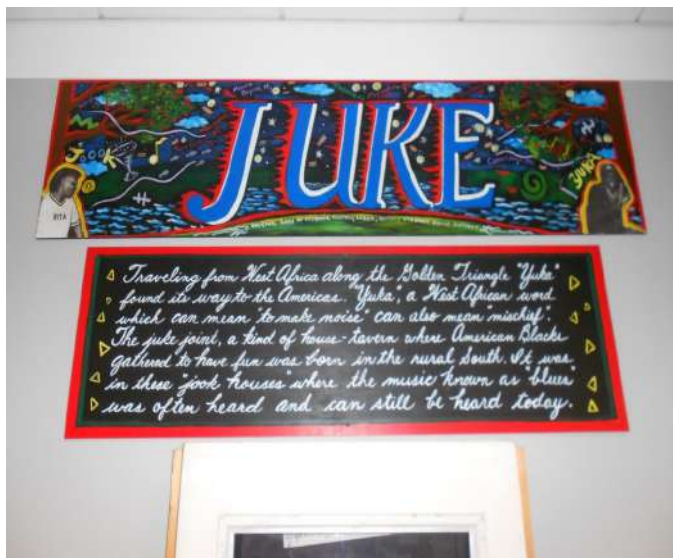 JUKE
JOOK
YUKA
RITA
Traveling from West Africa along the Golden Triangle "Yuka"
found its way to the Americas. "Yuka", a West African word
which can mean "to make noise" can also mean mischief.
The juke joint, a kind of house-tavern where American Blacks
gathered to have fun was born in the rural South. It was
in these "jook houses" where the music known as "blues"
was often heard and can still be heard today.